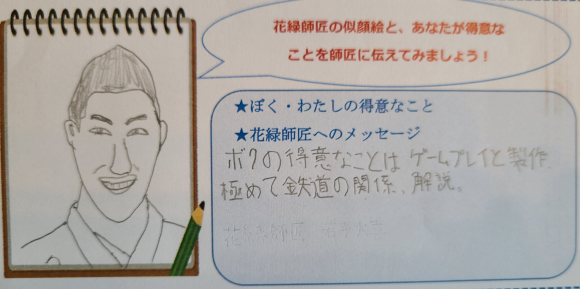 花緑師匠の似顔絵と、あなたが得意な
ことを師匠に伝えてみましょう！
★ぼく・わたしの得意なこと
★花緑師匠へのメッセージ
ボクの得意なことは ゲームプレイと製作、
極めて鉄道の関係、解説。